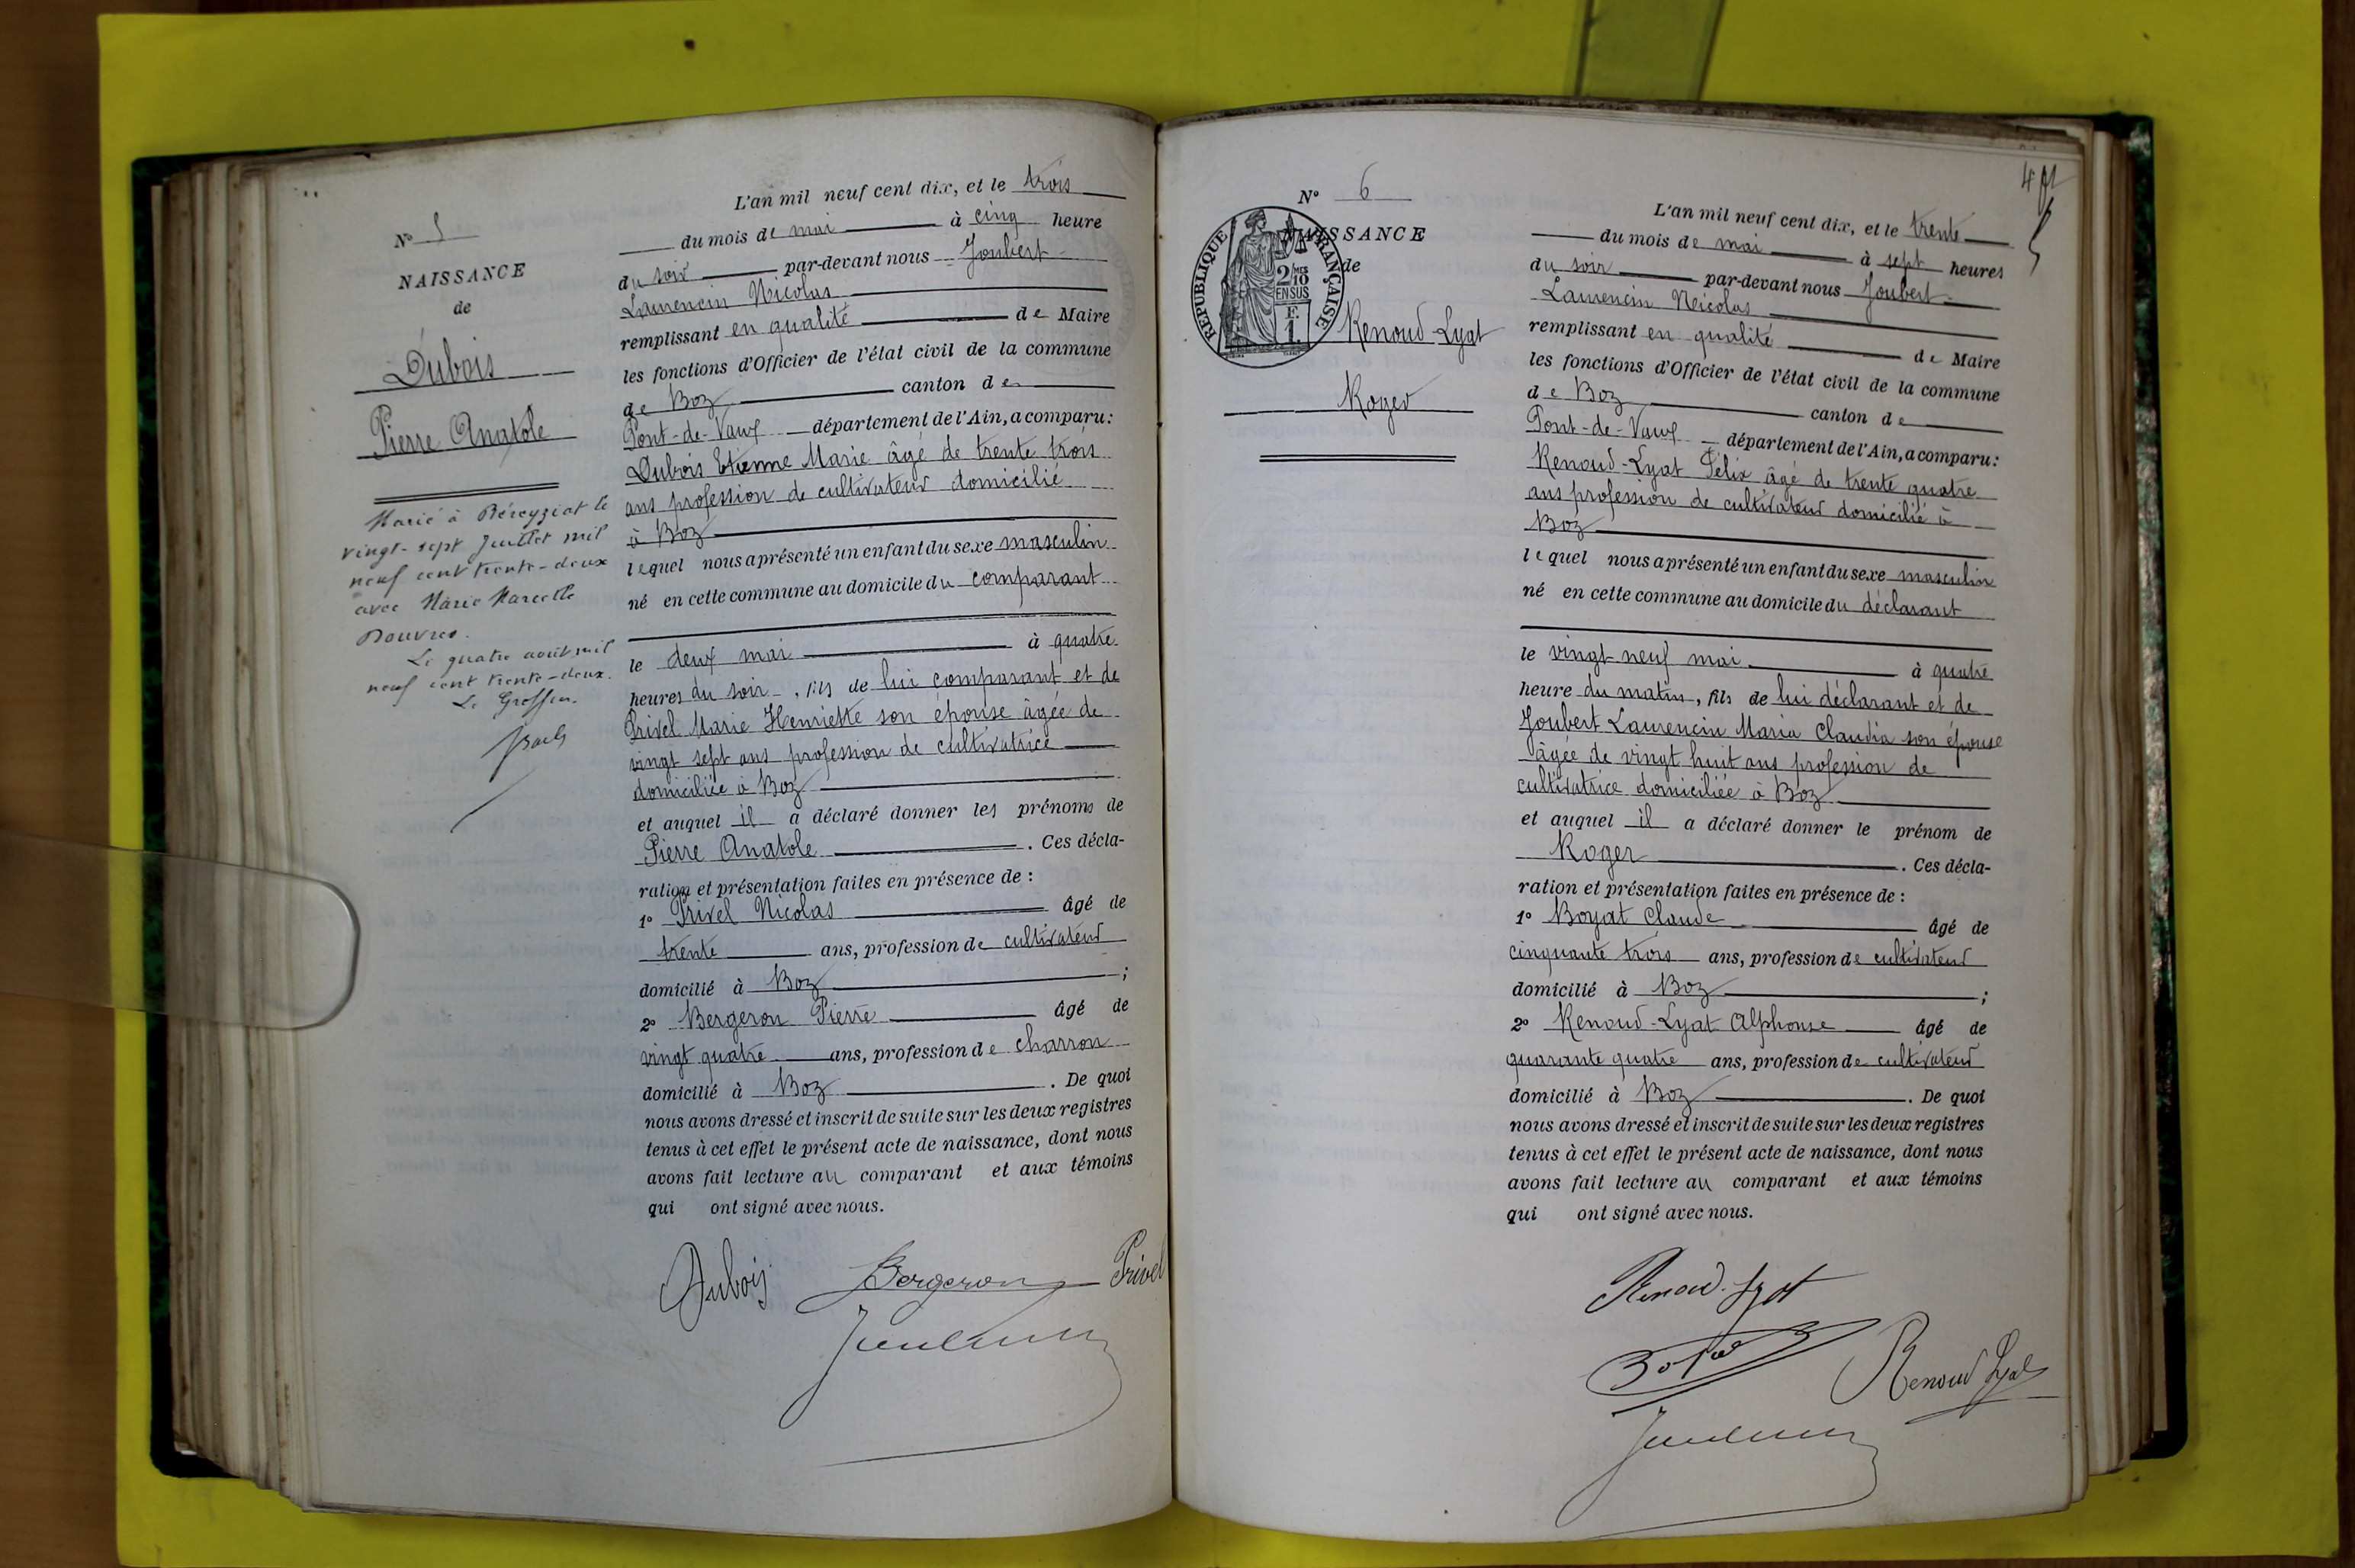 N° 5
NAISSANCE
de
Dubois
Pierre Anatole
Marié à Béreyziat le
vingt-sept Juillet mil
neuf cent trente-deux
avec Marie Marcelle
Douvres.
Le quatre août mil
neuf cent trente-deux.
Le Greffier.
L'an mil neuf cent dix, et le trois
du mois de mai à cinq heure
du soir par-devant nous Joubert
Laurencin Nicolas
remplissant en qualité de Maire
les fonctions d'Officier de l'état civil de la commune
de Boz canton de
Pont-de-Vaux département de l'Ain, a comparu:
Dubois Etienne Marie âgé de trente trois
ans profession de cultivateur domicilié
à Boz
lequel nous a présenté un enfant du sexe masculin
né en cette commune au domicile du comparant
le deux mai à quatre
heures du soir, fils de lui comparant et de
Privel Marie Henriette son épouse âgée de
vingt sept ans profession de cultivatrice
domiciliée à Boz
et auquel il a déclaré donner les prénoms de
Pierre Anatole. Ces décla-
ration et présentation faites en présence de :
1° Privel Nicolas âgé de
trente ans, profession de cultivateur
domicilié à Boz ;
2° Bergeron Pierre âgé de
vingt quatre ans, profession de charron
domicilié à Boz. De quoi
nous avons dressé et inscrit de suite sur les deux registres
tenus à cet effet le présent acte de naissance, dont nous
avons fait lecture au comparant et aux témoins
qui ont signé avec nous.
Dubois Bergeron Privel
4
N° 6
NAISSANCE
de
RÉPUBLIQUE FRANÇAISE
2/10 MES
EN SUS
F.
1.
Renoud-Lyat
Roger
L'an mil neuf cent dix, et le trente
du mois de mai à sept heures
du soir par-devant nous Joubert
Laurencin Nicolas
remplissant en qualité de Maire
les fonctions d'Officier de l'état civil de la commune
de Boz canton de
Pont-de-Vaux département de l'Ain, a comparu:
Renoud-Lyat Félix âgé de trente quatre
ans profession de cultivateur domicilié à
Boz
lequel nous a présenté un enfant du sexe masculin
né en cette commune au domicile du déclarant
le vingt neuf mai à quatre
heure du matin, fils de lui déclarant et de
Joubert Laurencin Maria Claudia son épouse
âgée de vingt huit ans profession de
cultivatrice domiciliée à Boz
et auquel il a déclaré donner le prénom de
Roger. Ces décla-
ration et présentation faites en présence de :
1° Boyat Claude âgé de
cinquante trois ans, profession de cultivateur
domicilié à Boz ;
2° Renoud-Lyat Alphonse âgé de
quarante quatre ans, profession de cultivateur
domicilié à Boz. De quoi
nous avons dressé et inscrit de suite sur les deux registres
tenus à cet effet le présent acte de naissance, dont nous
avons fait lecture au comparant et aux témoins
qui ont signé avec nous.
Renoud-Lyat
Renoud Lyat